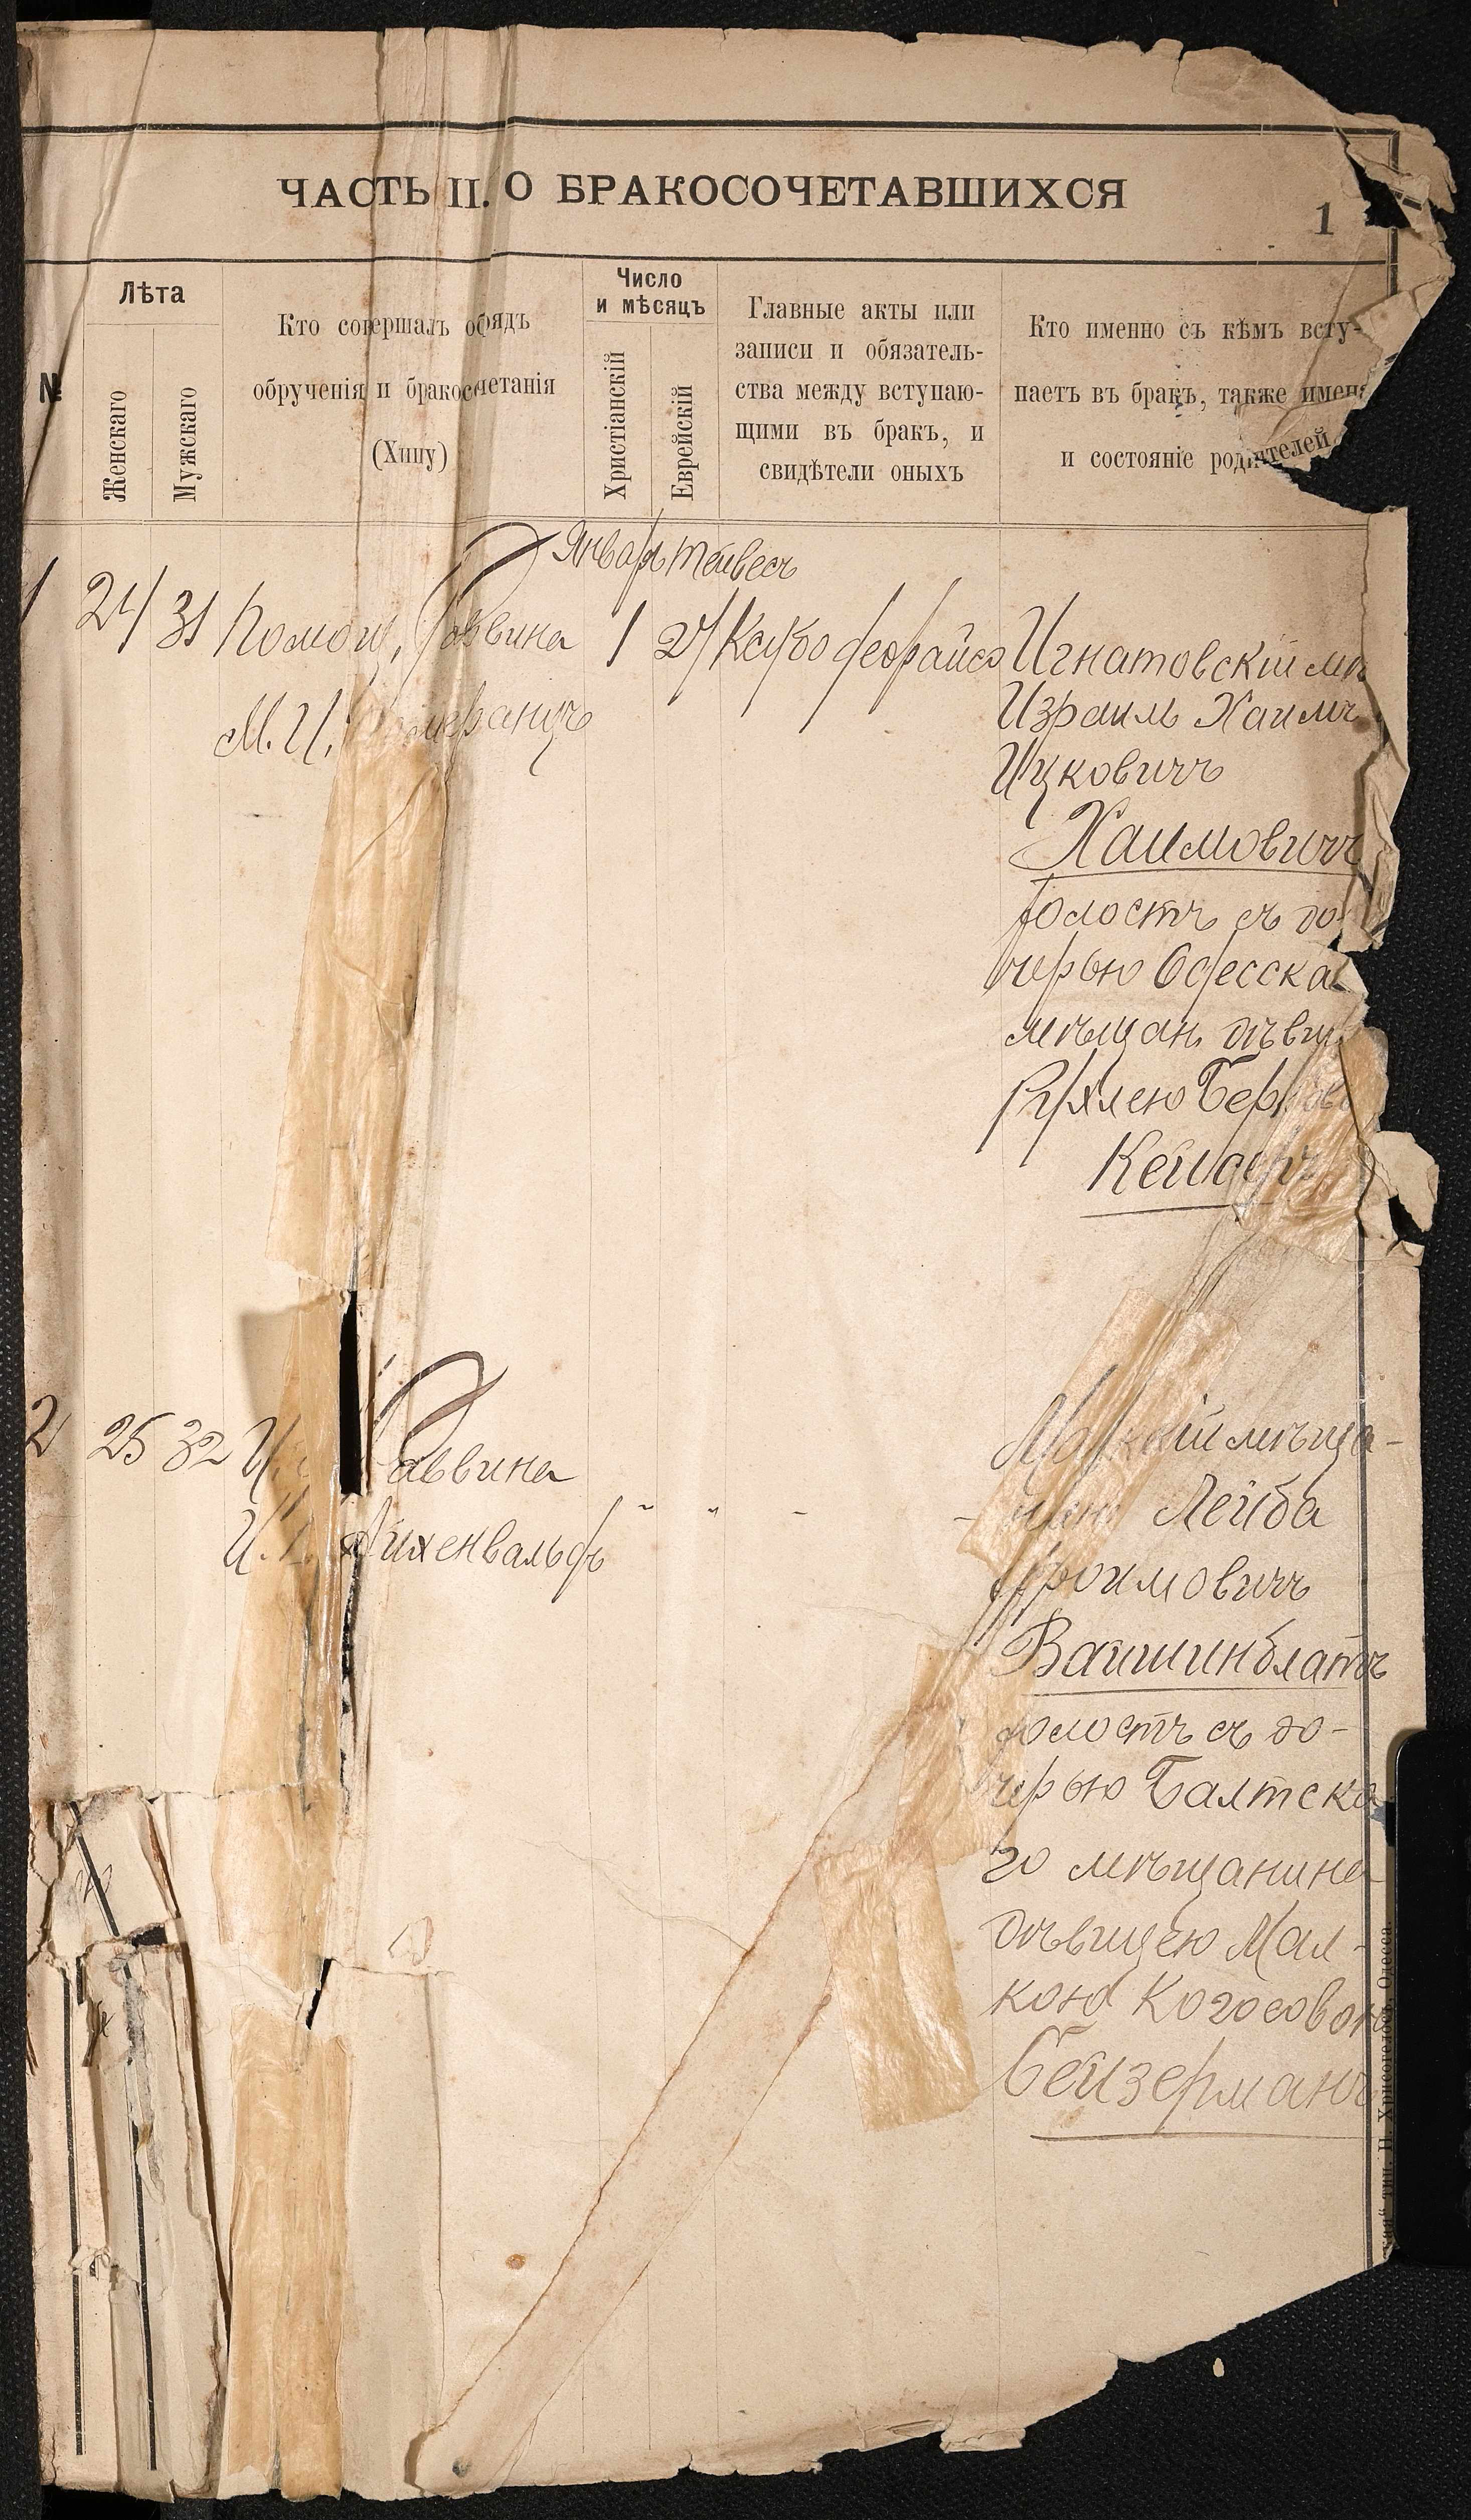 ЧАСТЬ II. О БРАКОСОЧЕТАВШИХСЯ
1
№
Лѣта
Женскаго
Мужскаго
Кто совершалъ обрядъ
обрученія и бракосочетанія
(Хипу)
Число
и мѣсяцъ
Христіанскій
Еврейскій
Главные акты или
записи и обязатель-
ства между вступаю-
щими въ бракъ, и
свидѣтели оныхъ
Кто именно съ кѣмъ всту-
паетъ въ бракъ, также имена
и состояніе родителей
Январь Тейвесъ
1 24 31 Помощ. Раввина 1 27 Ксубо деорайсо
М. И.
Игнатовскій мѣ
Израиль Хаимъ
Ицковичъ
Хаимовичъ
холостъ съ до-
черью Одесска
мѣщан. дѣвиц
Рухлею Бер
Кейсеръ
2 25 32 И. Раввина
И. Айхенвальдъ " " - -
мѣща-
нинъ Лейба
Фроимовичъ
Вайшинблатъ
холостъ съ до-
черью Балтска
го мѣщанина
дѣвицею Мал-
кою Когосовою
Бейзерманъ
тип. П. Хрисогелосъ, Одесса.